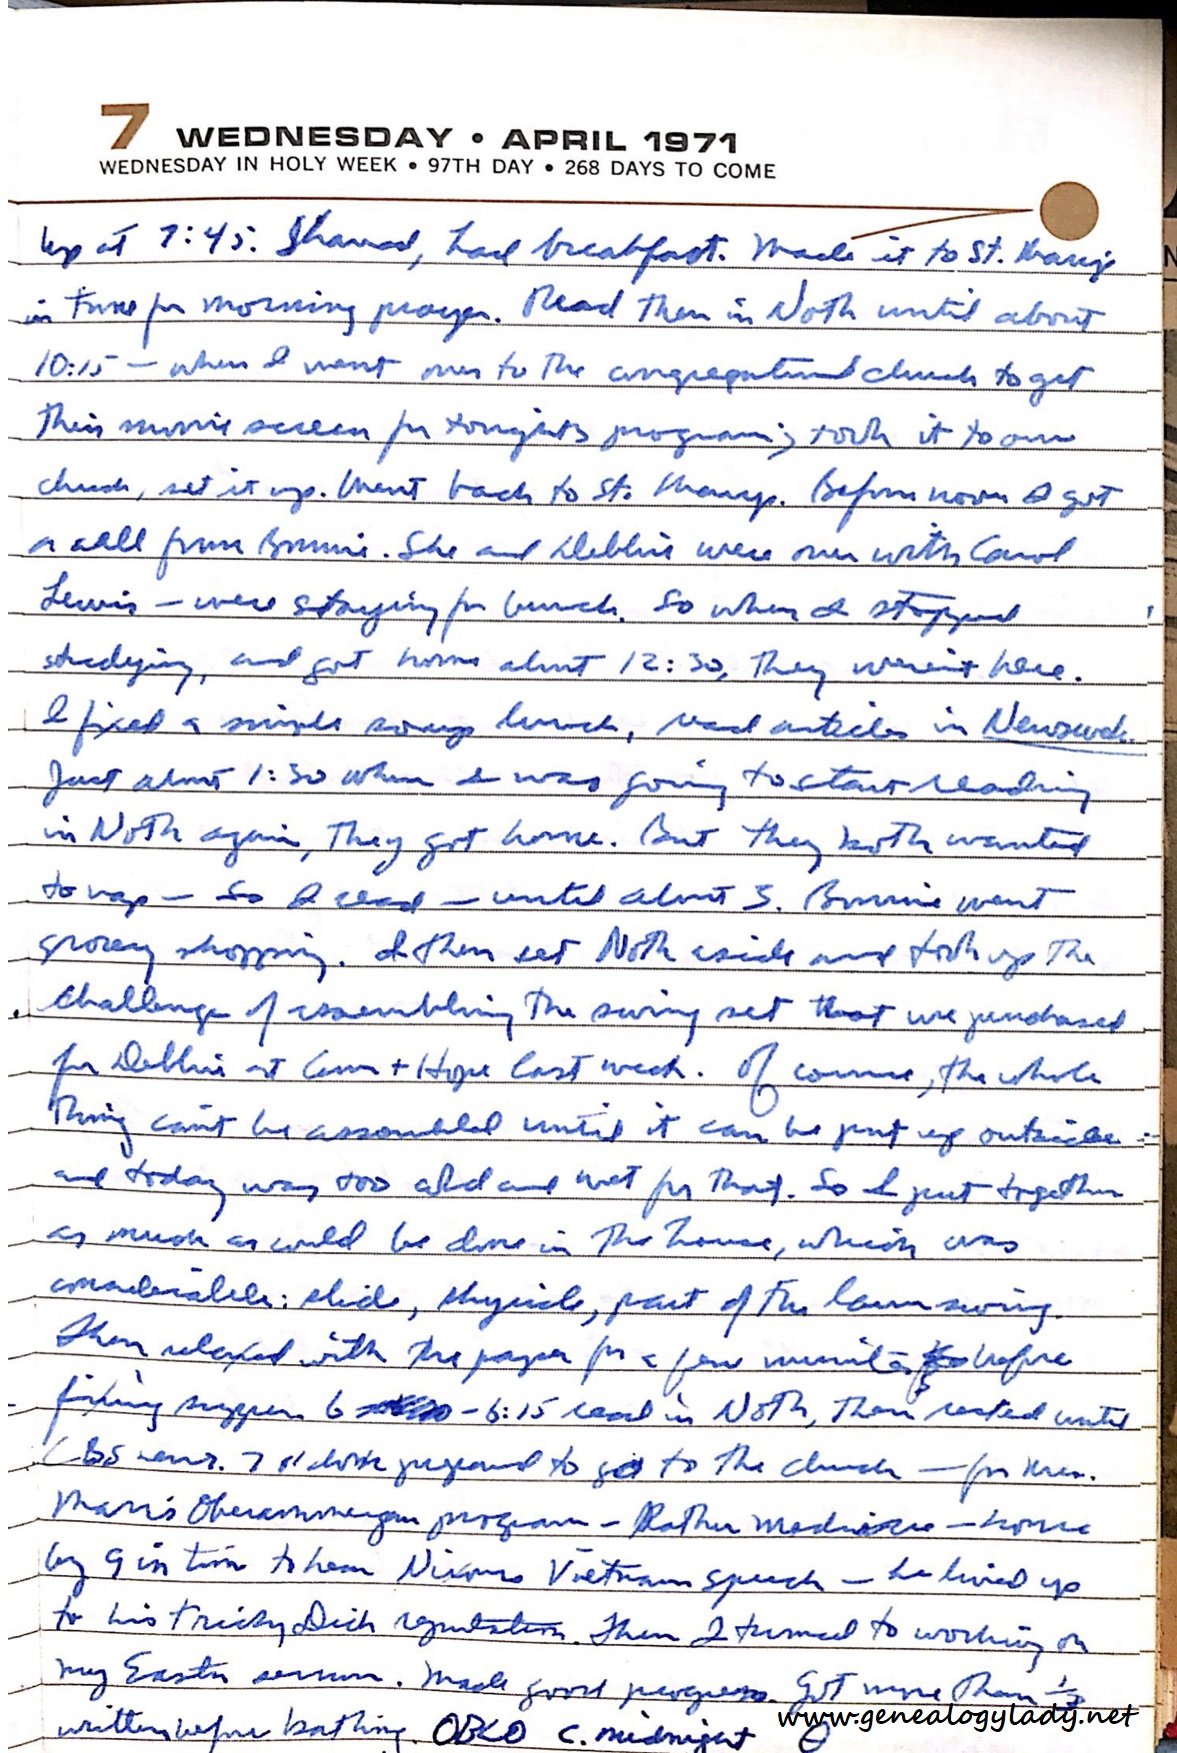 7 WEDNESDAY • APRIL 1971
WEDNESDAY IN HOLY WEEK • 97TH DAY • 268 DAYS TO COME
Up at 7:45. Shaved, had breakfast. Made it to St. Mary's
in time for morning prayer. Read then in Noth until about
10:15 – when I went over to the congregational church to get
their movie screen for tonight's program; took it to our
church, set it up. Went back to St. Mary's. Before noon I got
a call from Bonnie. She and Debbie were over with Carol
Lewis – were staying for lunch. So when I stopped
studying, and got home about 12:30, they weren't here.
I fixed a simple soup lunch, read articles in Newsweek.
Just about 1:30 when I was going to start reading
in Noth again, they got home. But they both wanted
to nap – so I read – until about 3. Bonnie went
grocery shopping. I then set Noth aside and took up the
challenge of assembling the swing set that we purchased
for Debbie at Ann + Hope last week. Of course, the whole
thing can't be assembled until it can be put up outside –
and today was too cold and wet for that. So I put together
as much as could be done in the house, which was
considerable: slide, skyride, part of the lawn swing.
Then relaxed with the paper for a few minutes before
fixing supper. 6 – 6:15 read in Noth, then rested until
CBS news. 7 o'clock prepared to go to the church – for
Marr's Oberammergau program – Rather mediocre – home
by 9 in time to hear Nixon's Vietnam speech – he lived up
to his Tricky Dick reputation. Then I turned to working on
my Easter sermon. Made good progress. Got more than 1/3
written before bathing. OBLO c. midnight
www.genealogylady.net